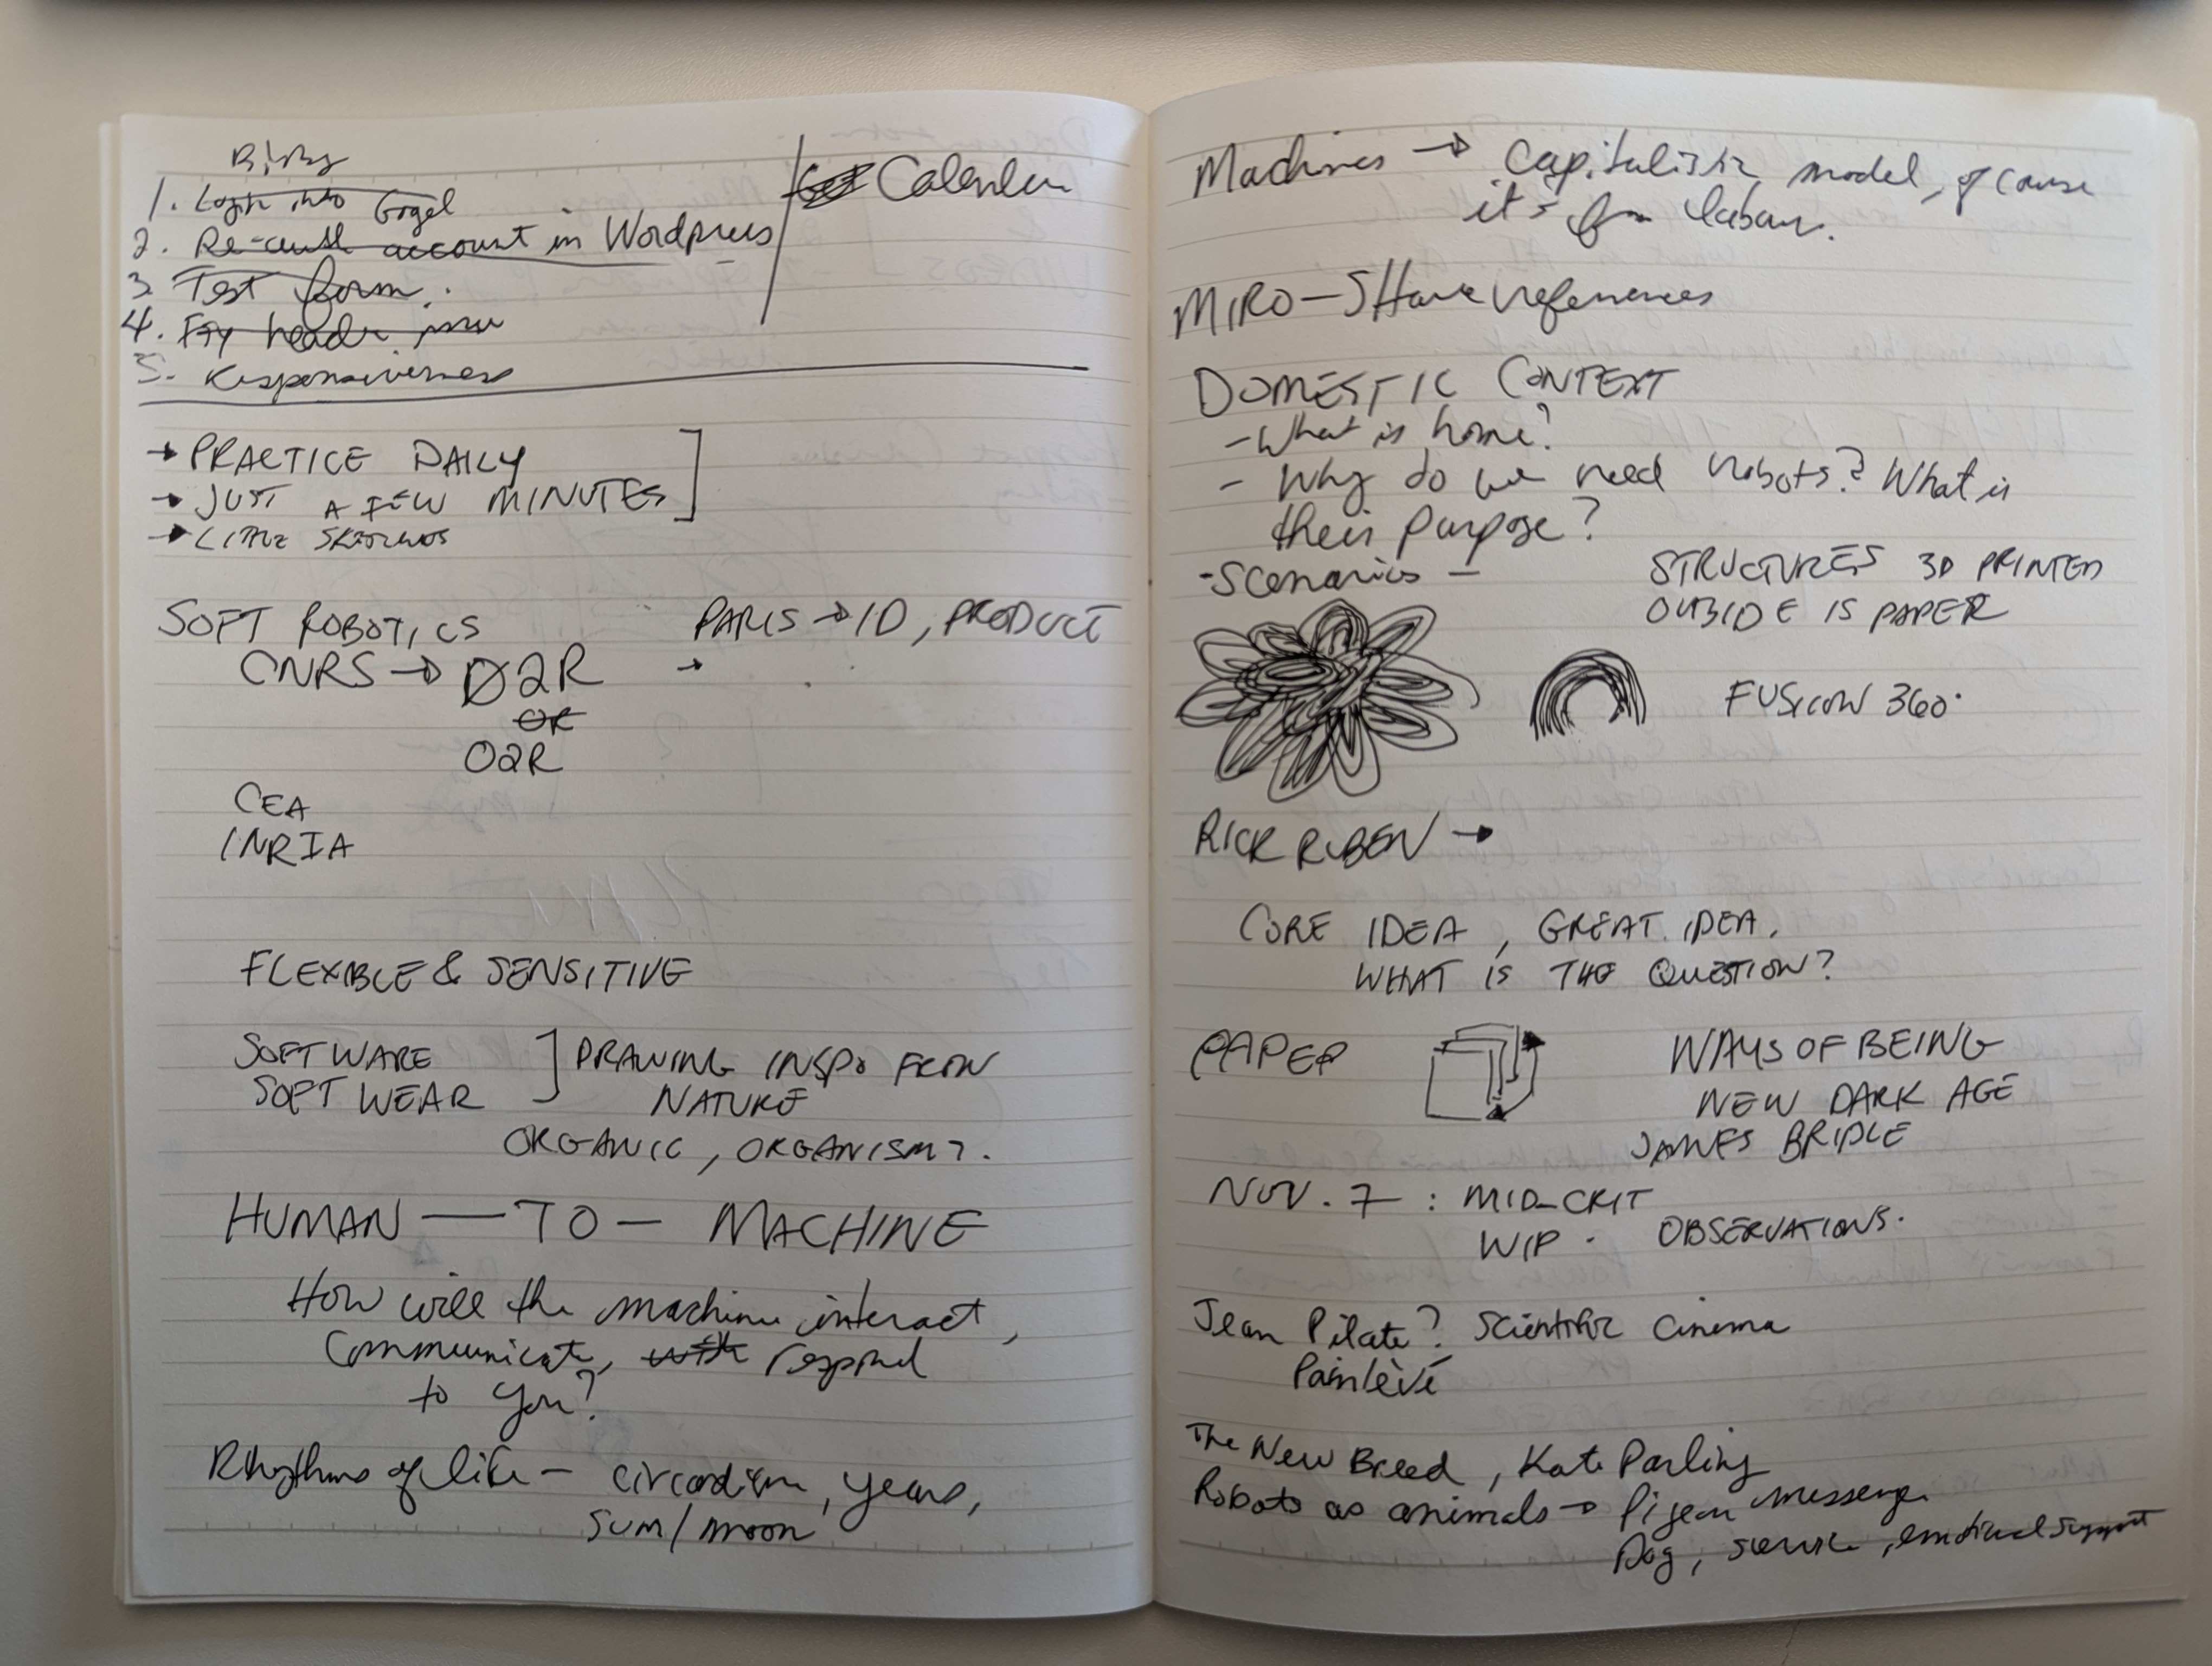 1. Login into Gogel
2. Re-auth account in Wordpress
Calendar
3 Test form.
4. Fix header issue
5. Responsiveness
→ PRACTICE DAILY
→ JUST A FEW MINUTES
→ LITTLE SKETCHES
SOFT ROBOTICS
PARIS → ID, PRODUCT
CNRS → D2R
→
OR
O2R
CEA
INRIA
FLEXIBLE & SENSITIVE
SOFTWARE
SOFT WEAR
DRAWING INSPO FROM
NATURE
ORGANIC, ORGANISM?.
HUMAN — TO — MACHINE
How will the machine interact,
Communicate, with respond
to you?
Rhythms of life — circadian, years,
sun/moon
Machines → Capitalistic model, of course
it's for labour.
MIRO — SHare references
DOMESTIC CONTEXT
- What is home?
- Why do we need robots? What is
their purpose?
- Scenarios —
STRUCTURES 3D PRINTED
OUTSIDE IS PAPER
FUSION 360°
RICK RUBEN →
CORE IDEA, GREAT IDEA,
WHAT IS THE QUESTION?
PAPER
WAYS OF BEING
NEW DARK AGE
JAMES BRIDLE
NOV. 7 : MID-CRIT
WIP . OBSERVATIONS.
Jean Pilate? Scientific Cinema
Painlèvé
The New Breed, Kate Darling
Robots as animals → Pigeon messenger
Dog, service, emotional support